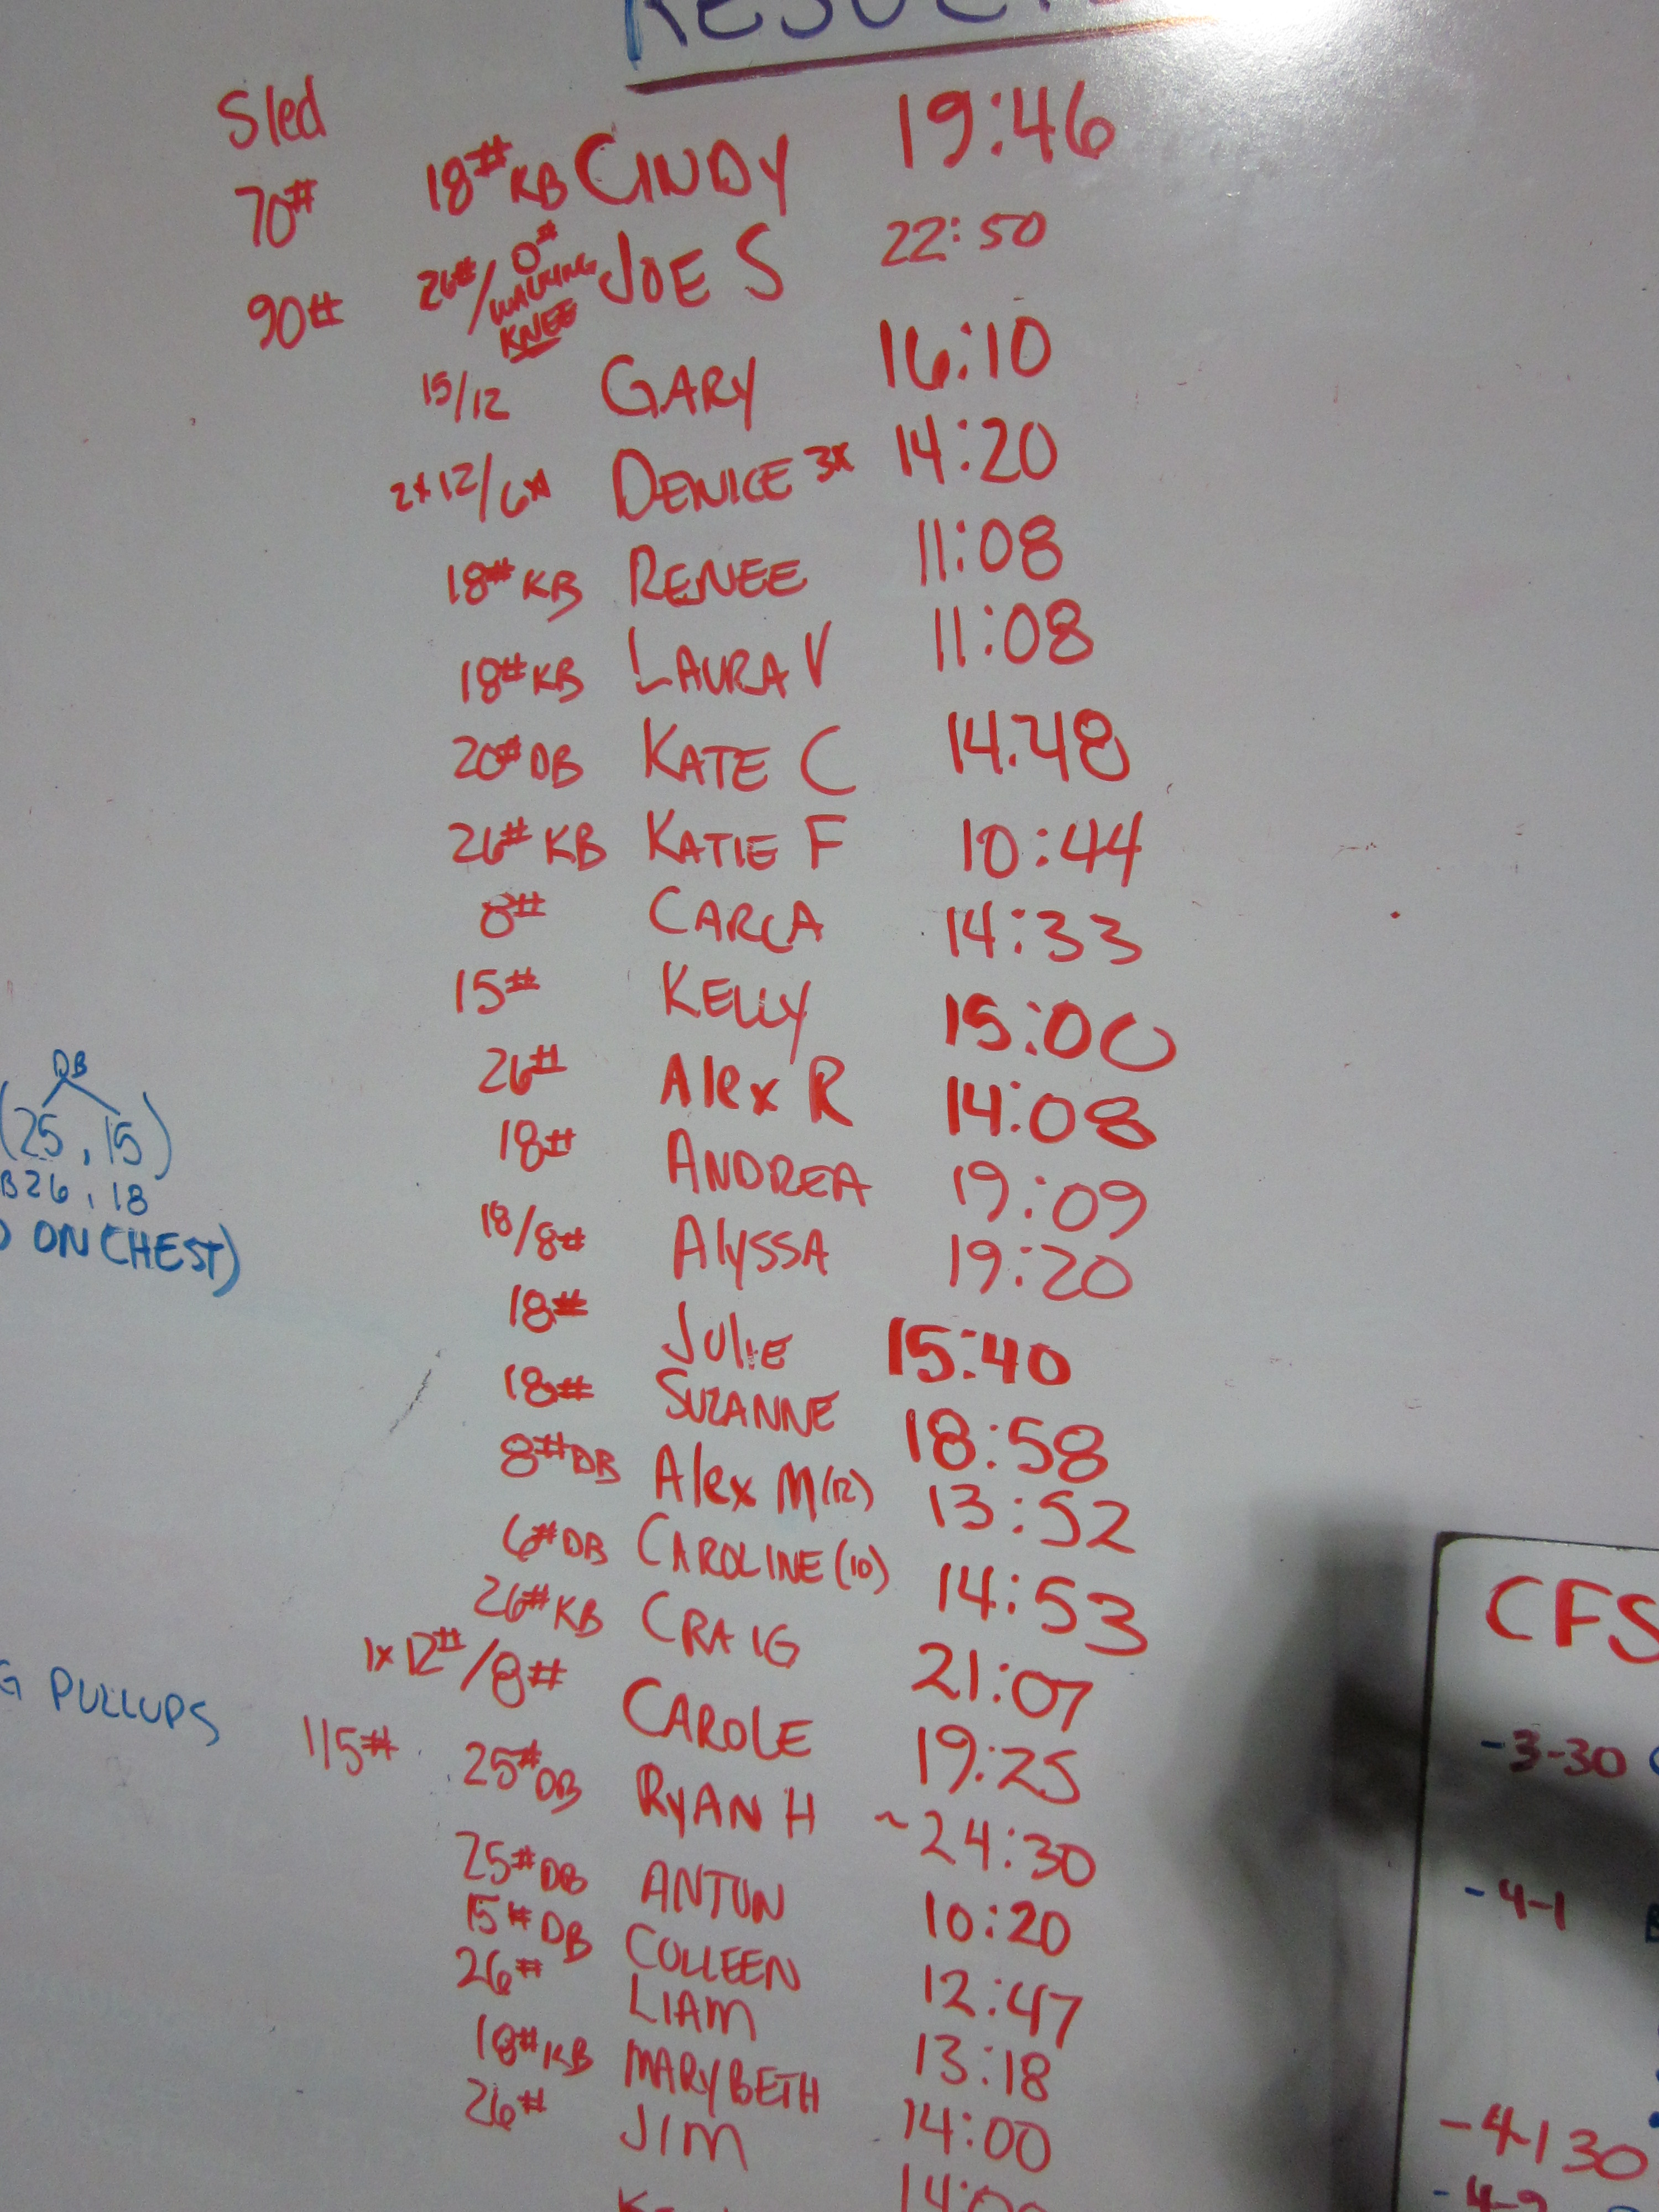 RESULTS
Sled
70# 18# KB CINDY 19:46
90# 26#/0# WALKING KNEE JOE S 22:50
15/12 GARY 16:10
2x12/6# DENICE 3x 14:20
18# KB RENEE 11:08
18# KB LAURA V 11:08
20# DB KATE C 14:48
26# KB KATIE F 10:44
8# CARLA 14:33
15# KELLY 15:00
26# Alex R 14:08
18# ANDREA 19:09
18/8# AlySSA 19:20
18# JULIE 15:40
18# SUZANNE 18:58
8# DB Alex M (12) 13:52
6# DB CAROLINE (10) 14:53
26# KB CRAIG 21:07
1x12#/8# CAROLE 19:25
115# 25# DB RYAN H ~24:30
25# DB ANTON 10:20
15# DB COLLEEN 12:47
26# LIAM 13:18
18# KB MARYBETH 14:00
26# JIM
DB
(25, 15)
B 26, 18
ON CHEST)
G PULLUPS
CFS
-3-30
-4-1
-4-1 30